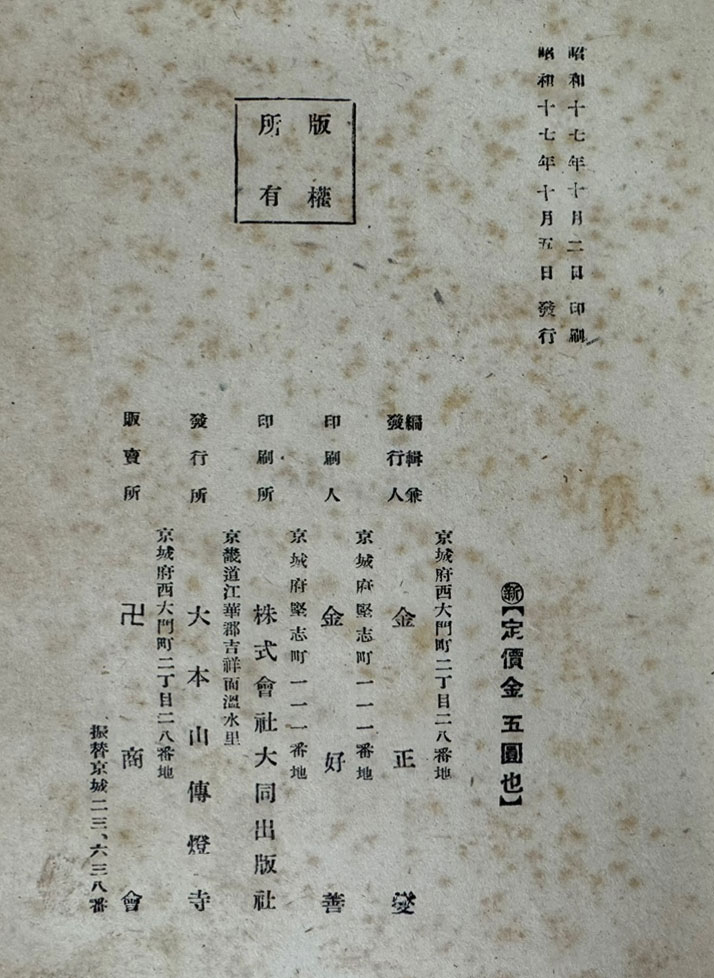 昭和十七年十月二日 印刷
昭和十七年十月五日 發行
版權
所有
㊟新【定價金 五圓也】
京城府西大門町二丁目二八番地
編輯兼
發行人 金正
京城府堅志町一一一番地
印刷人 金好善
京城府堅志町一一一番地
印刷所 株式會社大同出版社
京畿道江華郡吉祥面溫水里
發行所 大本山傳燈寺
京城府西大門町二丁目二八番地
販賣所 卍商會
振替京城二三、六三八番